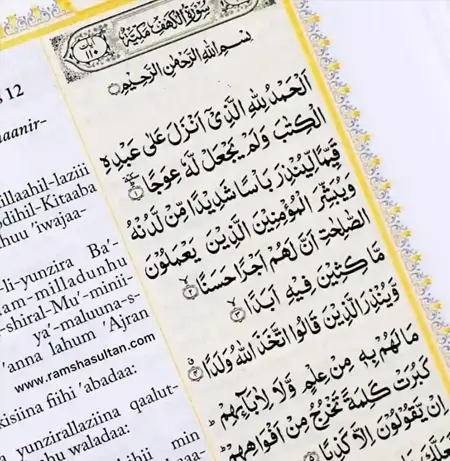 سُوْرَةُ الْكَهْفِ مَكِّيَّةٌ
١١٠
بِسْمِ اللهِ الرَّحْمٰنِ الرَّحِيْمِ
اَلْحَمْدُ لِلّٰهِ الَّذِيْٓ اَنْزَلَ عَلٰى عَبْدِهِ
الْكِتٰبَ وَلَمْ يَجْعَلْ لَّهٗ عِوَجًا ١
قَيِّمًا لِّيُنْذِرَ بَاْسًا شَدِيْدًا مِّنْ لَّدُنْهُ
وَيُبَشِّرَ الْمُؤْمِنِيْنَ الَّذِيْنَ يَعْمَلُوْنَ
الصّٰلِحٰتِ اَنَّ لَهُمْ اَجْرًا حَسَنًا ٢
مَّا كِثِيْنَ فِيْهِ اَبَدًا ٣
وَّيُنْذِرَ الَّذِيْنَ قَالُوا اتَّخَذَ اللهُ وَلَدًا ٤
مَا لَهُمْ بِهٖ مِنْ عِلْمٍ وَّلَا لِاٰبَآئِهِمْ
كَبُرَتْ كَلِمَةً تَخْرُجُ مِنْ اَفْوَاهِهِمْ
اِنْ يَّقُوْلُوْنَ اِلَّا كَذِبًا
s 12
aanir-
illaahil-laziii
odihil-Kitaaba
huu 'iwajaa-
-li-yunzira Ba'-
am-milladunhu
-shiral-Mu'-minii-
ya'-maluuna-s-
'anna lahum 'Ajran
www.ramshasultan.com
kisiina fiihi 'abadaa:
yunzirallaziina qaalut-
u waladaa:
bihii min